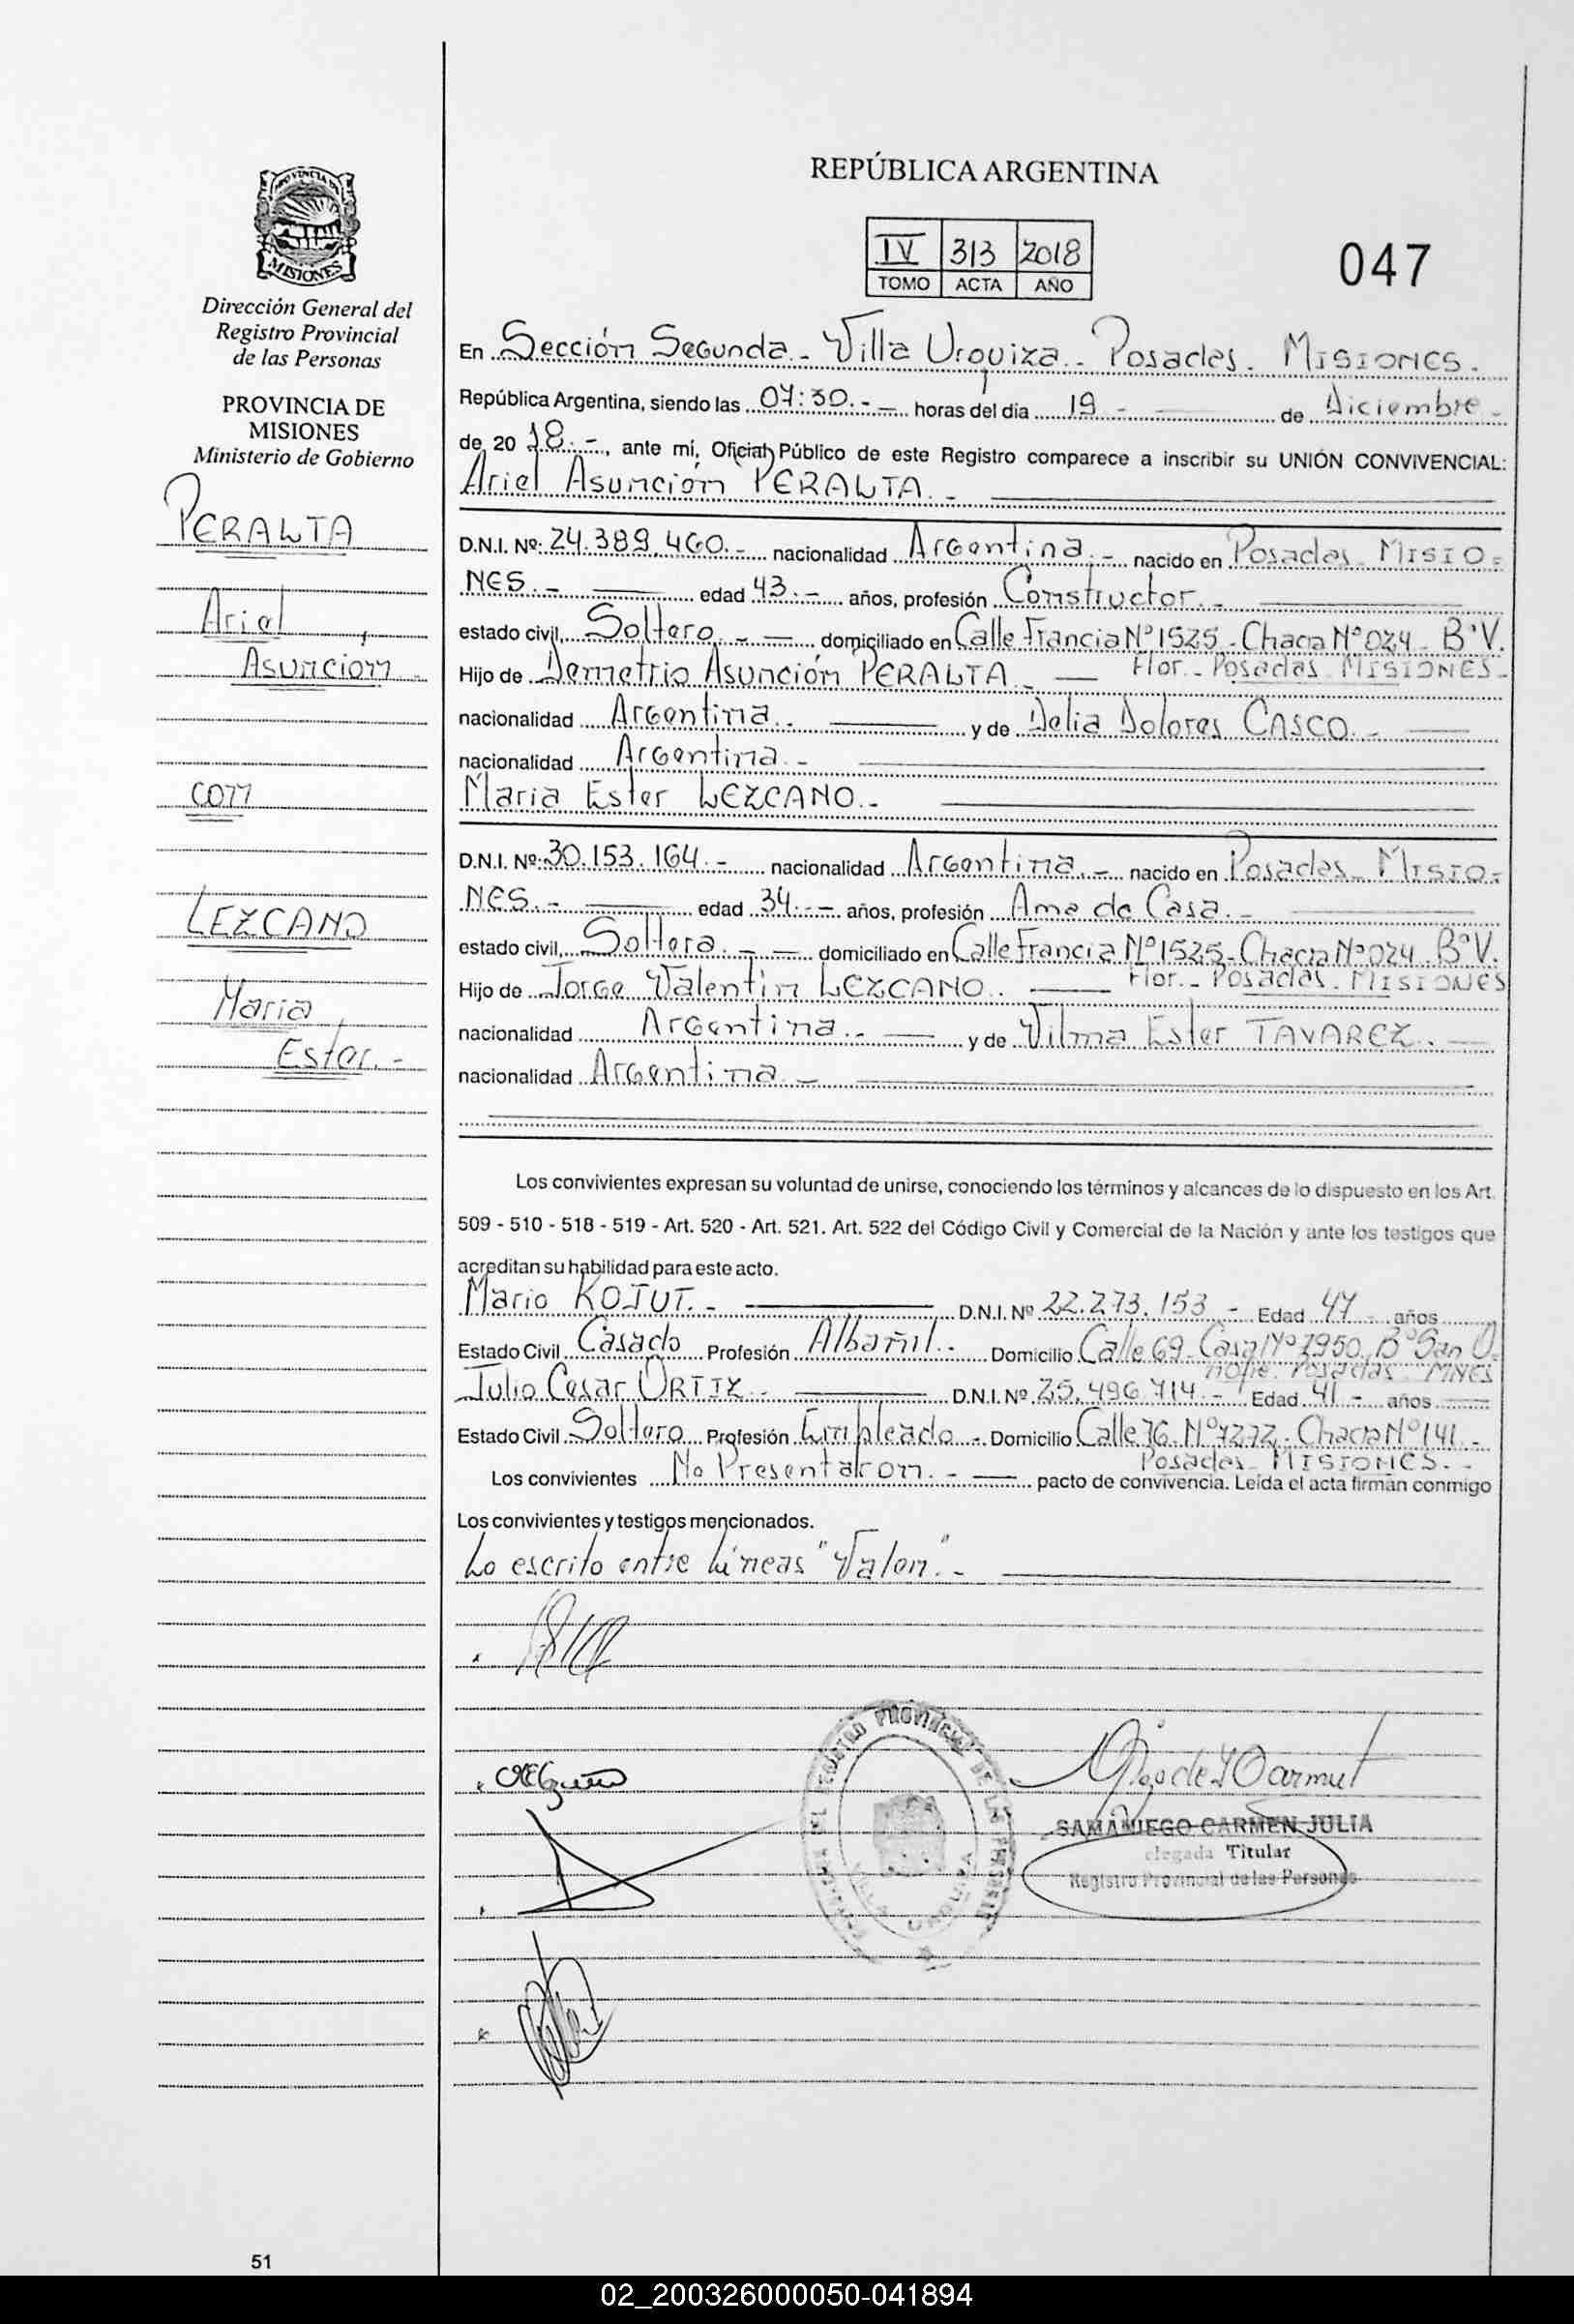 MISIONES
Dirección General del
Registro Provincial
de las Personas
PROVINCIA DE
MISIONES
Ministerio de Gobierno
PERALTA
Ariel,
Asuncion.-
con
LEZCANO
Maria
Ester.-
51
REPÚBLICA ARGENTINA
IV 313 2018
TOMO ACTA AÑO
047
En Sección Segunda.- Villa Urquiza.- Posadas. MISIONES.-
República Argentina, siendo las 07:30.- horas del día 19 - de Diciembre -
de 20 18.-, ante mí, Oficial Público de este Registro comparece a inscribir su UNIÓN CONVIVENCIAL:
Ariel Asunción PERALTA.-
D.N.I. Nº: 24.389.460.- nacionalidad Argentina.- nacido en Posadas MISIO-
NES.- edad 43.- años, profesión Constructor.-
estado civil Soltero.- domiciliado en Calle Francia Nº1525- Chacra Nº024 - Bº V.
Flor.- Posadas MISIONES-
Hijo de Demetrio Asunción PERALTA.-
nacionalidad Argentina.- y de Delia Dolores CASCO.-
nacionalidad Argentina.-
Maria Ester LEZCANO.-
D.N.I. Nº: 30.153.164.- nacionalidad Argentina.- nacido en Posadas- MISIO-
NES.- edad 34.- años, profesión Ama de Casa.-
estado civil Soltera.- domiciliado en Calle Francia Nº1525- Chacra Nº024. BºV.
Flor.- Posadas. MISIONES
Hijo de Jorge Valentin LEZCANO.-
nacionalidad Argentina.- y de Vilma Ester TAVAREZ.-
nacionalidad Argentina.-
Los convivientes expresan su voluntad de unirse, conociendo los términos y alcances de lo dispuesto en los Art.
509 - 510 - 518 - 519 - Art. 520 - Art. 521. Art. 522 del Código Civil y Comercial de la Nación y ante los testigos que
acreditan su habilidad para este acto.
Mario KOJUT.- D.N.I. Nº 22.273.153 - Edad 47 - años
Estado Civil Casado Profesión Albañil.- Domicilio Calle 69- Casa Nº 7950. Bº San O-
nofre. Posadas MNES
Julio Cesar ORTIZ.- D.N.I. Nº 25.496.714.- Edad 41 - años
Estado Civil Soltero Profesión Empleado - Domicilio Calle 76. Nº7272- Chacra Nº141.-
Posadas- MISIONES.-
Los convivientes No Presentaron.- pacto de convivencia. Leída el acta firman conmigo
Los convivientes y testigos mencionados.
Lo escrito entre líneas "Valen".-
SAMANIEGO CARMEN JULIA
Delegada Titular
Registro Provincial de las Personas
02_200326000050-041894